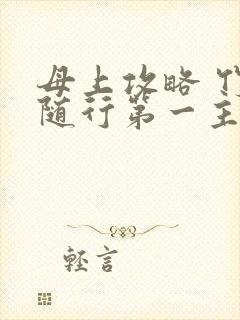 母上攻略
随行第一主
轻言